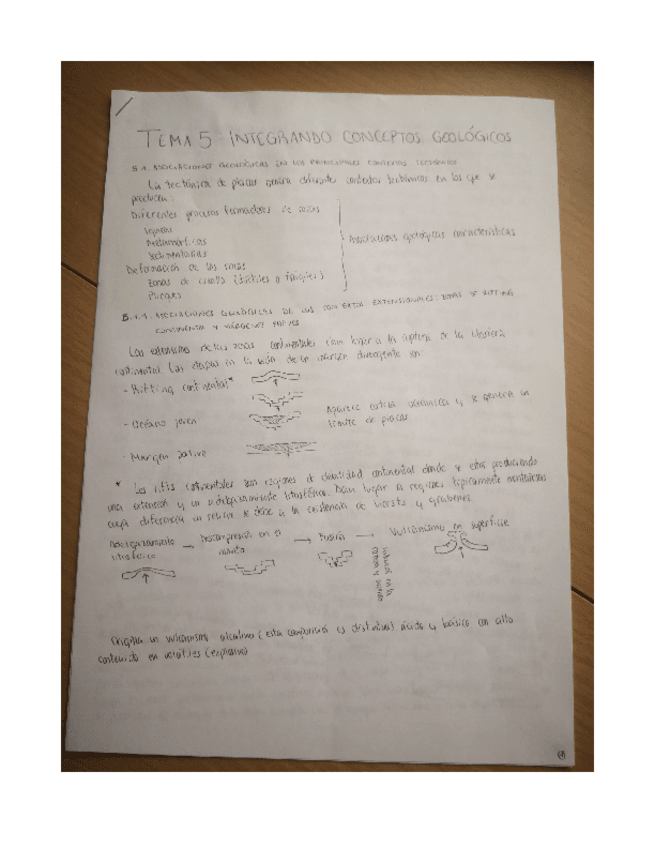 TEMA 5 INTEGRANDO CONCEPTOS GEOLÓGICOS
5.1. ASOCIACIONES GEOLÓGICAS EN LOS PRINCIPALES CONTEXTOS TECTÓNICOS
La tectónica de placas genera diferentes contextos tectónicos en los que se
producen:
Diferentes procesos formadores de rocas
Ígneas
Metamórficas
Sedimentarias
Deformación de las rocas
Zonas de cizalla (dúctiles o frágiles)
Pliegues
Asociaciones geológicas características
5.1.1. ASOCIACIONES GEOLÓGICAS DE LOS CONTEXTOS EXTENSIONALES: ZONAS DE RIFTING
CONTINENTAL Y MÁRGENES PASIVOS
de las zonas continentales dan lugar a la ruptura de la litosfera
continental. Las etapas en la de un margen divergente son:
- Rifting continental*
- Océano joven
Aparece corteza oceánica y se genera un
límite de placas
- Margen pasivo
* Los rifts continentales son regiones de continental donde se está produciendo
una extensión y un adelgazamiento litosférico. Dan lugar a regiones típicamente montañosas
cuya diferencia en relieve se debe a la existencia de horsts y grabenes.
Adelgazamiento → Descompresión en el → Fusión → Vulcanismo en superficie
litosférico
manto
Origina un vulcanismo alcalino (esta composición es distintiva) ácido y básico con alto
contenido en volátiles (explosivo)